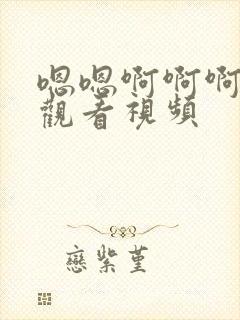 嗯嗯啊啊啊
觀看視頻
戀紫堇